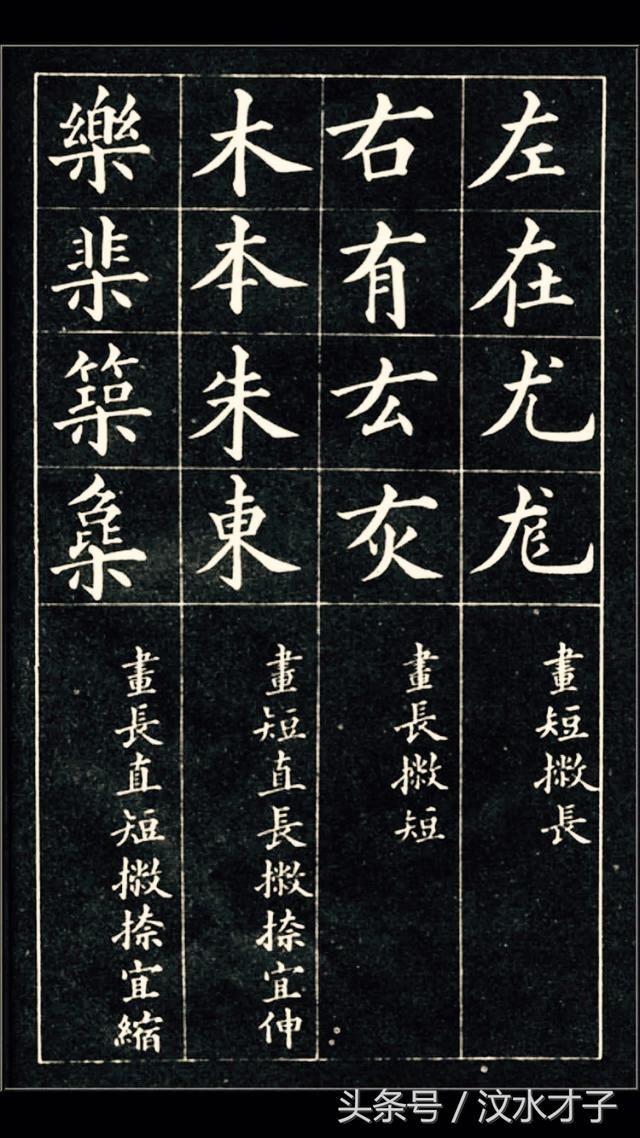 左在尤
畫短撇長
右有厷灰
畫長撇短
木本朱東
畫短直長撇捺宜伸
樂棐
畫長直短撇捺宜縮
头条号 / 汶水才子